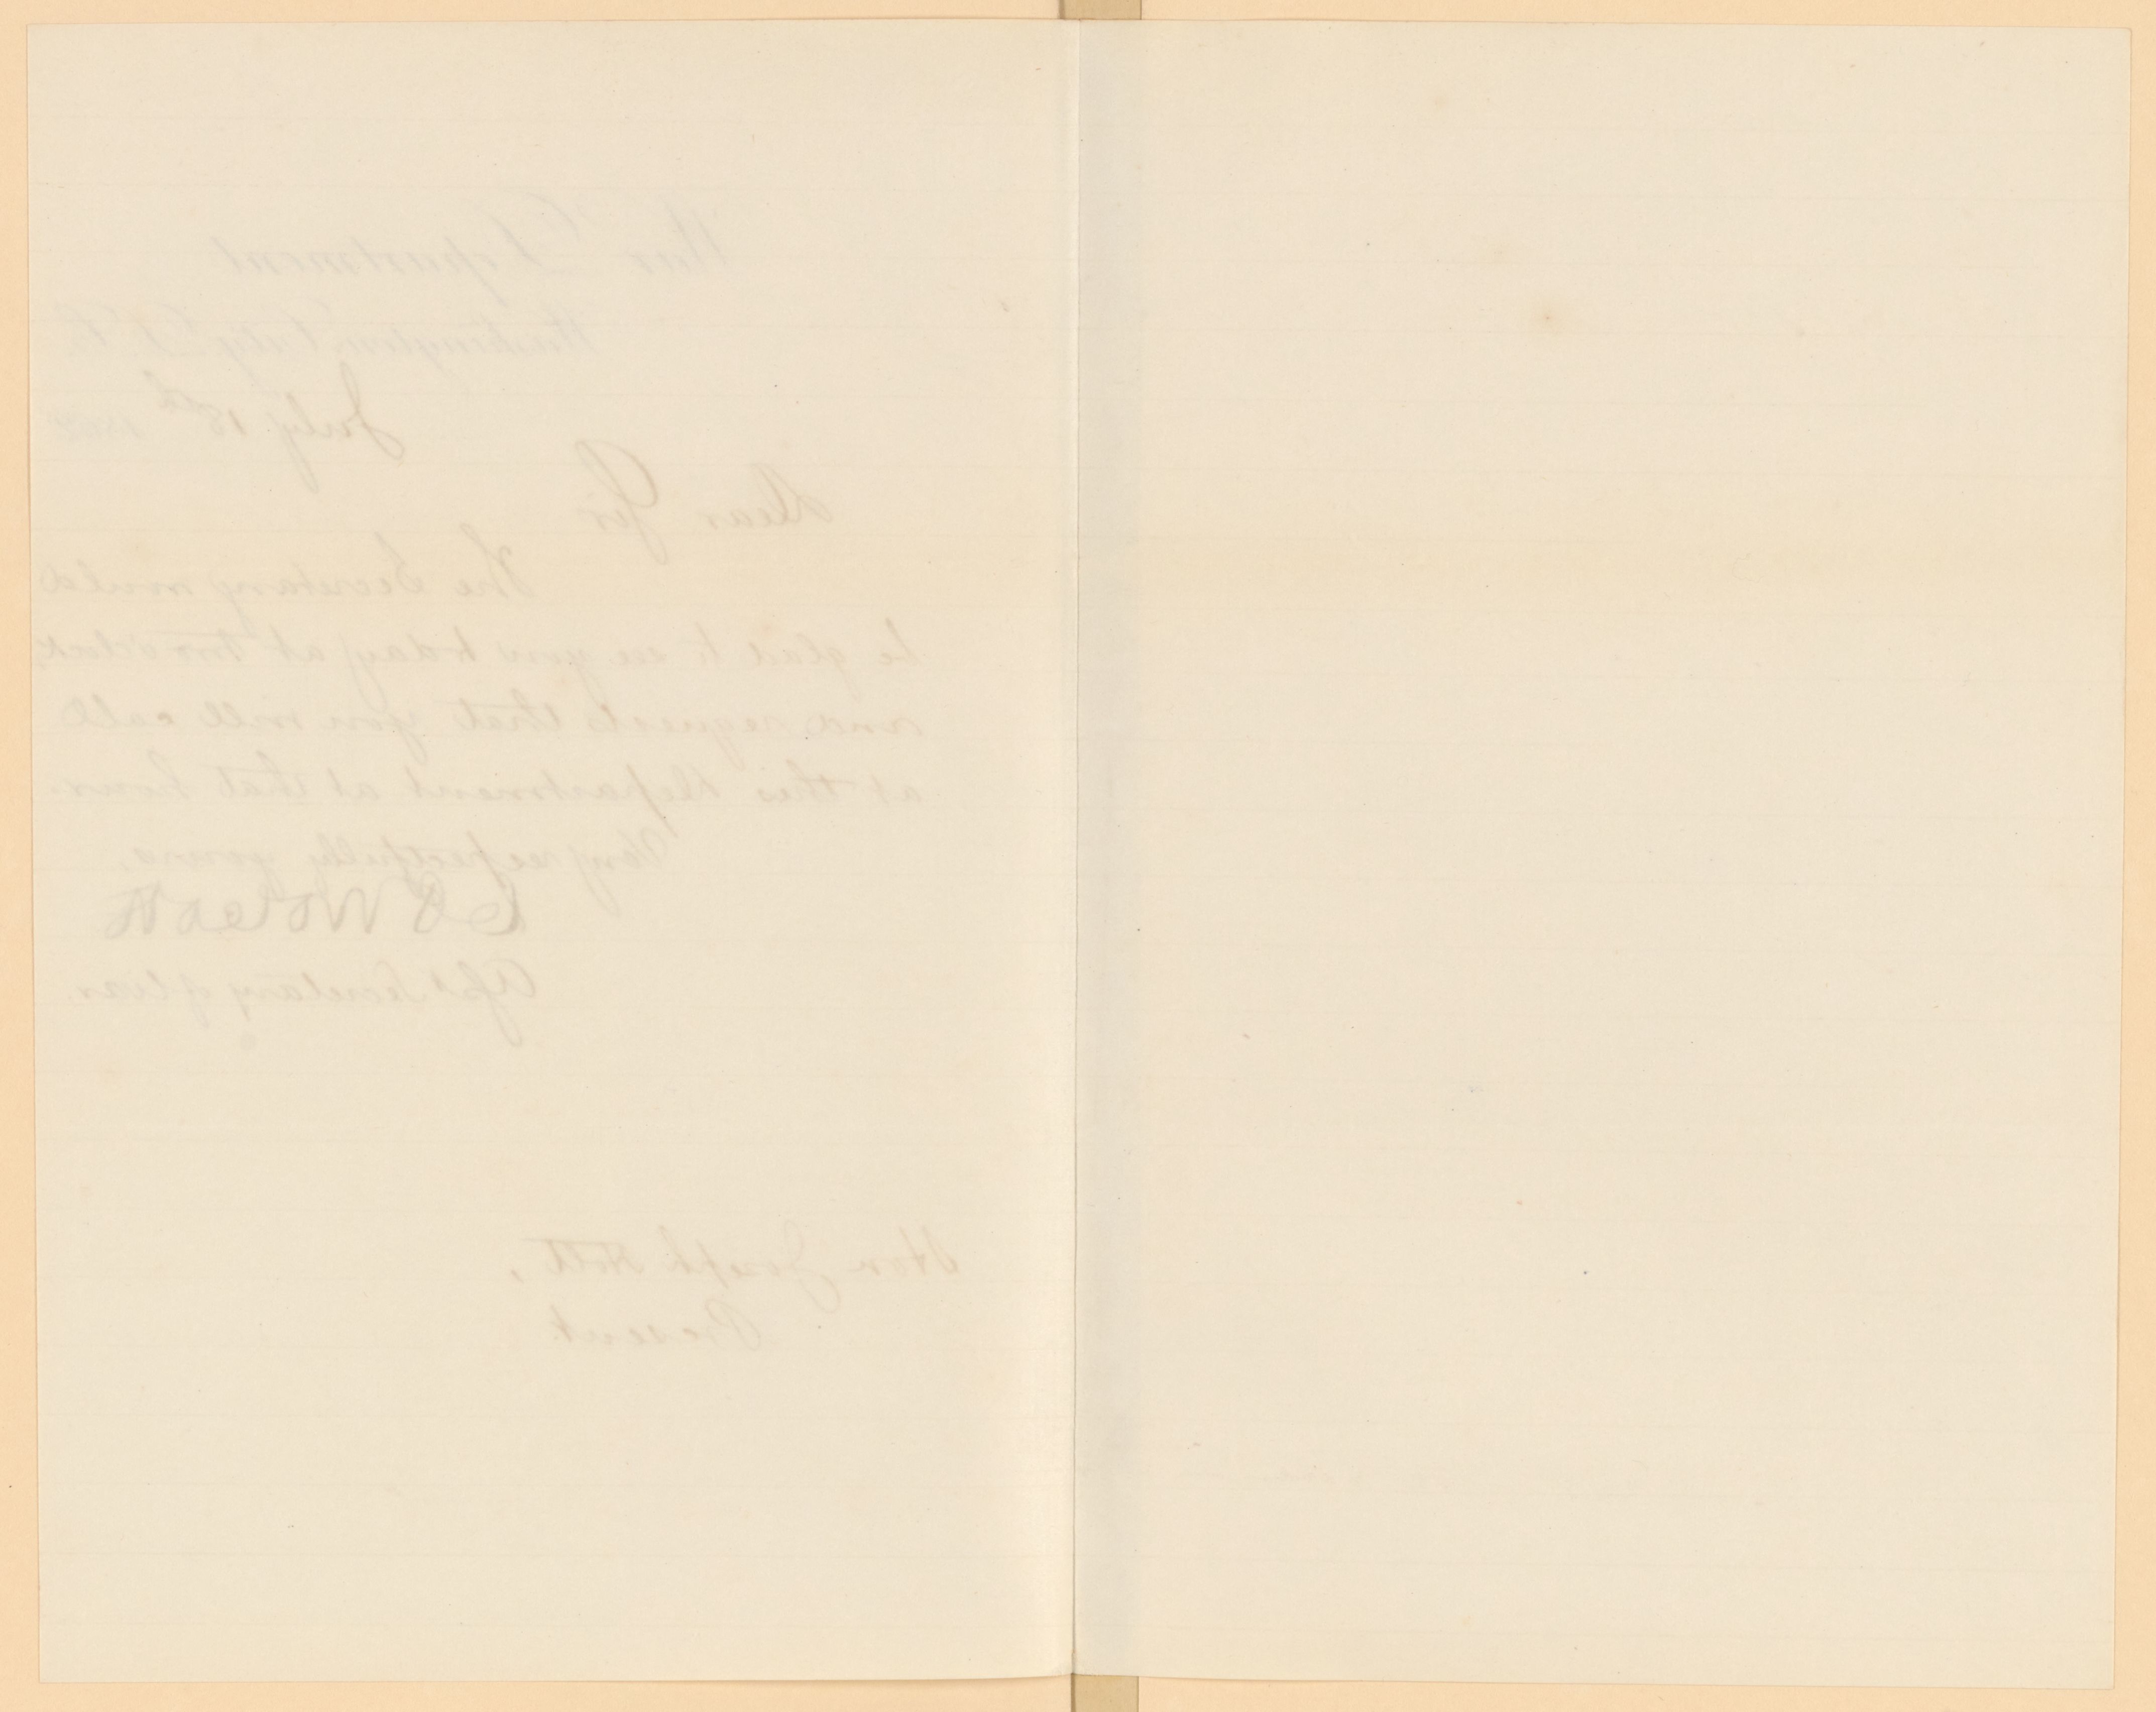 War Department
Washington City D.C.
July 18th 1862
Dear Sir
The Secretary would
be glad to see you today at two o'clock
and requests that you will call
at this Department at that hour.
Very respectfully yours,
Asst Secretary of War.
Hon Joseph Holt,
Present